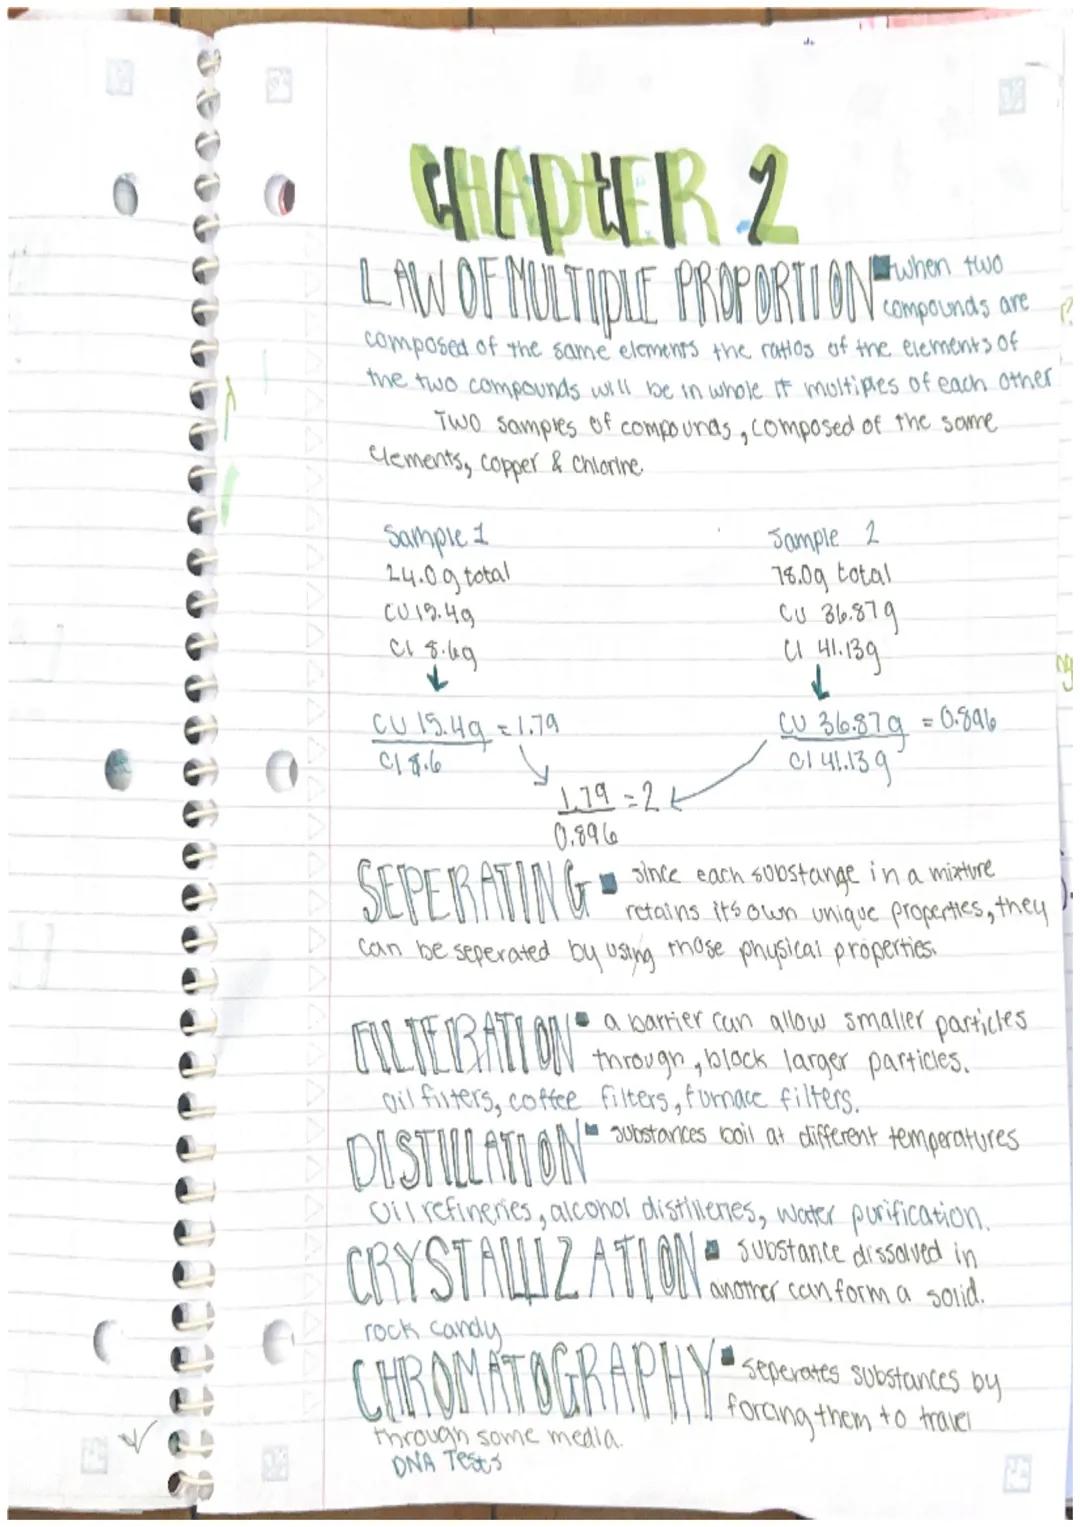 CHAPtER 2
LAW OF MULTIPLE PROPORTION when two
compounds are
composed of the same elements the ratios of the elements of
the two compounds will be in whole # multiples of each other
Two samples of compounds, composed of the same
elements, copper & Chlorine.
Sample 1
24.0g total
CU 15.4g
Cl 8.6g
CU 15.4g = 1.79
Cl 8.6
Sample 2
78.0g total
Cu 36.87g
Cl 41.13g
CU 36.87g = 0.896
Cl 41.13g
1.79 = 2
0.896
SEPERATING since each substange in a mixture
retains it's own unique properties, they
can be seperated by using those physical properties.
FILTERATION a barrier can allow smaller particles
through, block larger particles.
oil filters, coffee filters, furnace filters.
DISTILLATION substances boil at different temperatures
Oil refineries, alcohol distilleries, water purification.
CRYSTALLIZATION substance dissolved in
another can form a solid.
rock candy
CHROMATOGRAPHY seperates substances by
forcing them to travel
through some media.
DNA Tests